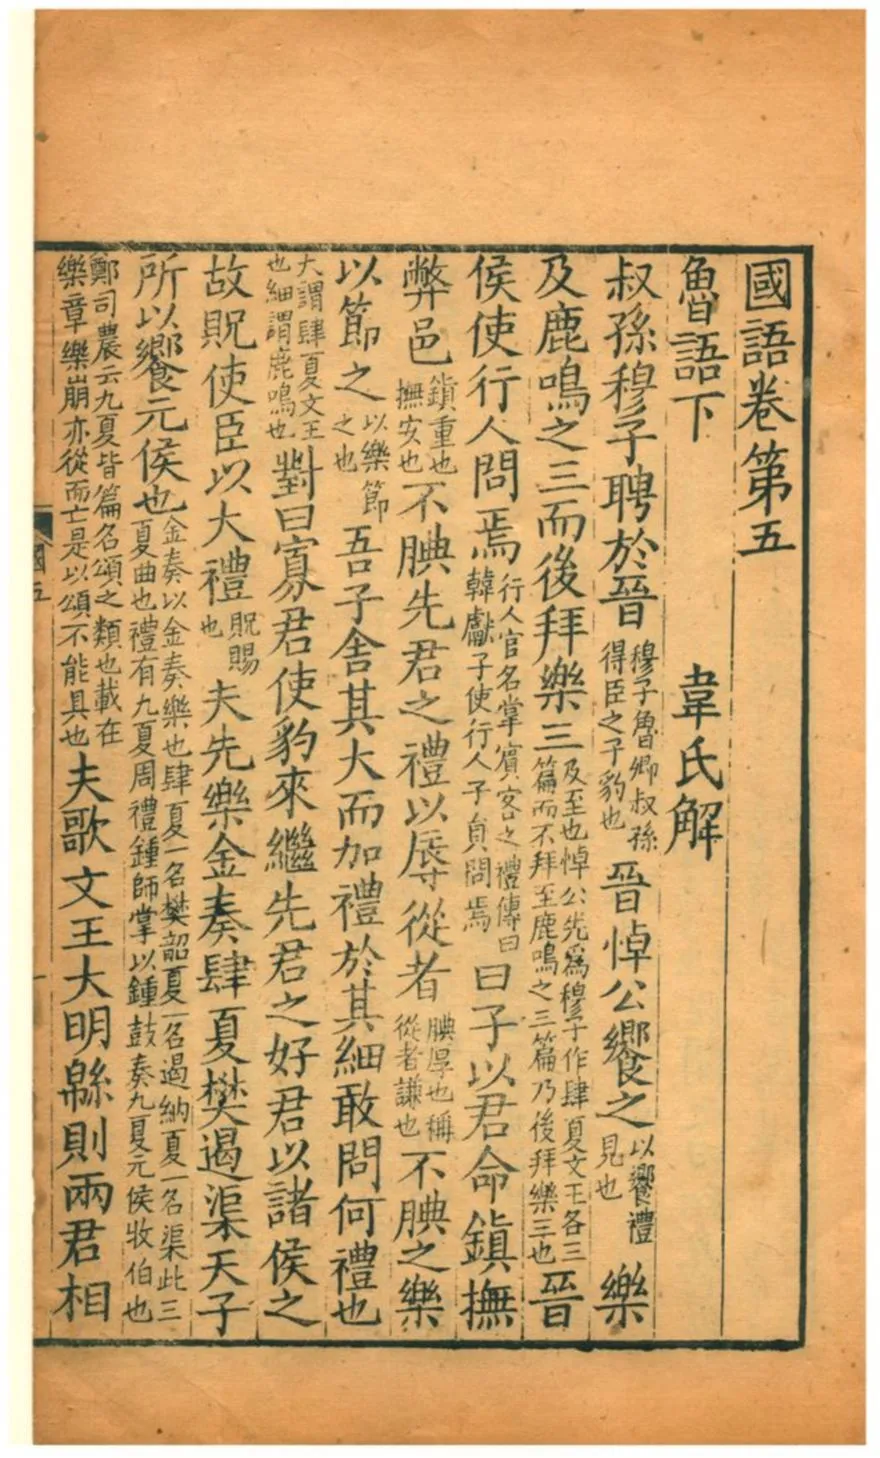 國語卷第五
魯語下　韋氏解
叔孫穆子聘於晉穆子魯卿叔孫得臣之子豹也晉悼公饗之以饗禮見也樂
及鹿鳴之三而後拜樂三及至也悼公先爲穆子作肆夏文王各三篇而不拜至鹿鳴之三篇乃後拜樂三也晉
侯使行人問焉行人官名掌賓客之禮傳曰韓獻子使行人子員問焉曰子以君命鎮撫
弊邑鎮重也撫安也不腆先君之禮以辱從者腆厚也稱從者謙也不腆之樂
以節之以樂節之也吾子舍其大而加禮於其細敢問何禮也
大謂肆夏文王也細謂鹿鳴也對曰寡君使豹來繼先君之好君以諸侯之
故貺使臣以大禮貺賜也夫先樂金奏肆夏樊遏渠天子
所以饗元侯也金奏以金奏樂也肆夏一名樊韶夏一名遏納夏一名渠此三夏曲也禮有九夏周禮鍾師掌以鍾鼓奏九夏元侯牧伯也
鄭司農云九夏皆篇名頌之類也載在樂章樂崩亦從而亡是以頌不能具也夫歌文王大明緜則兩君相
國五
一